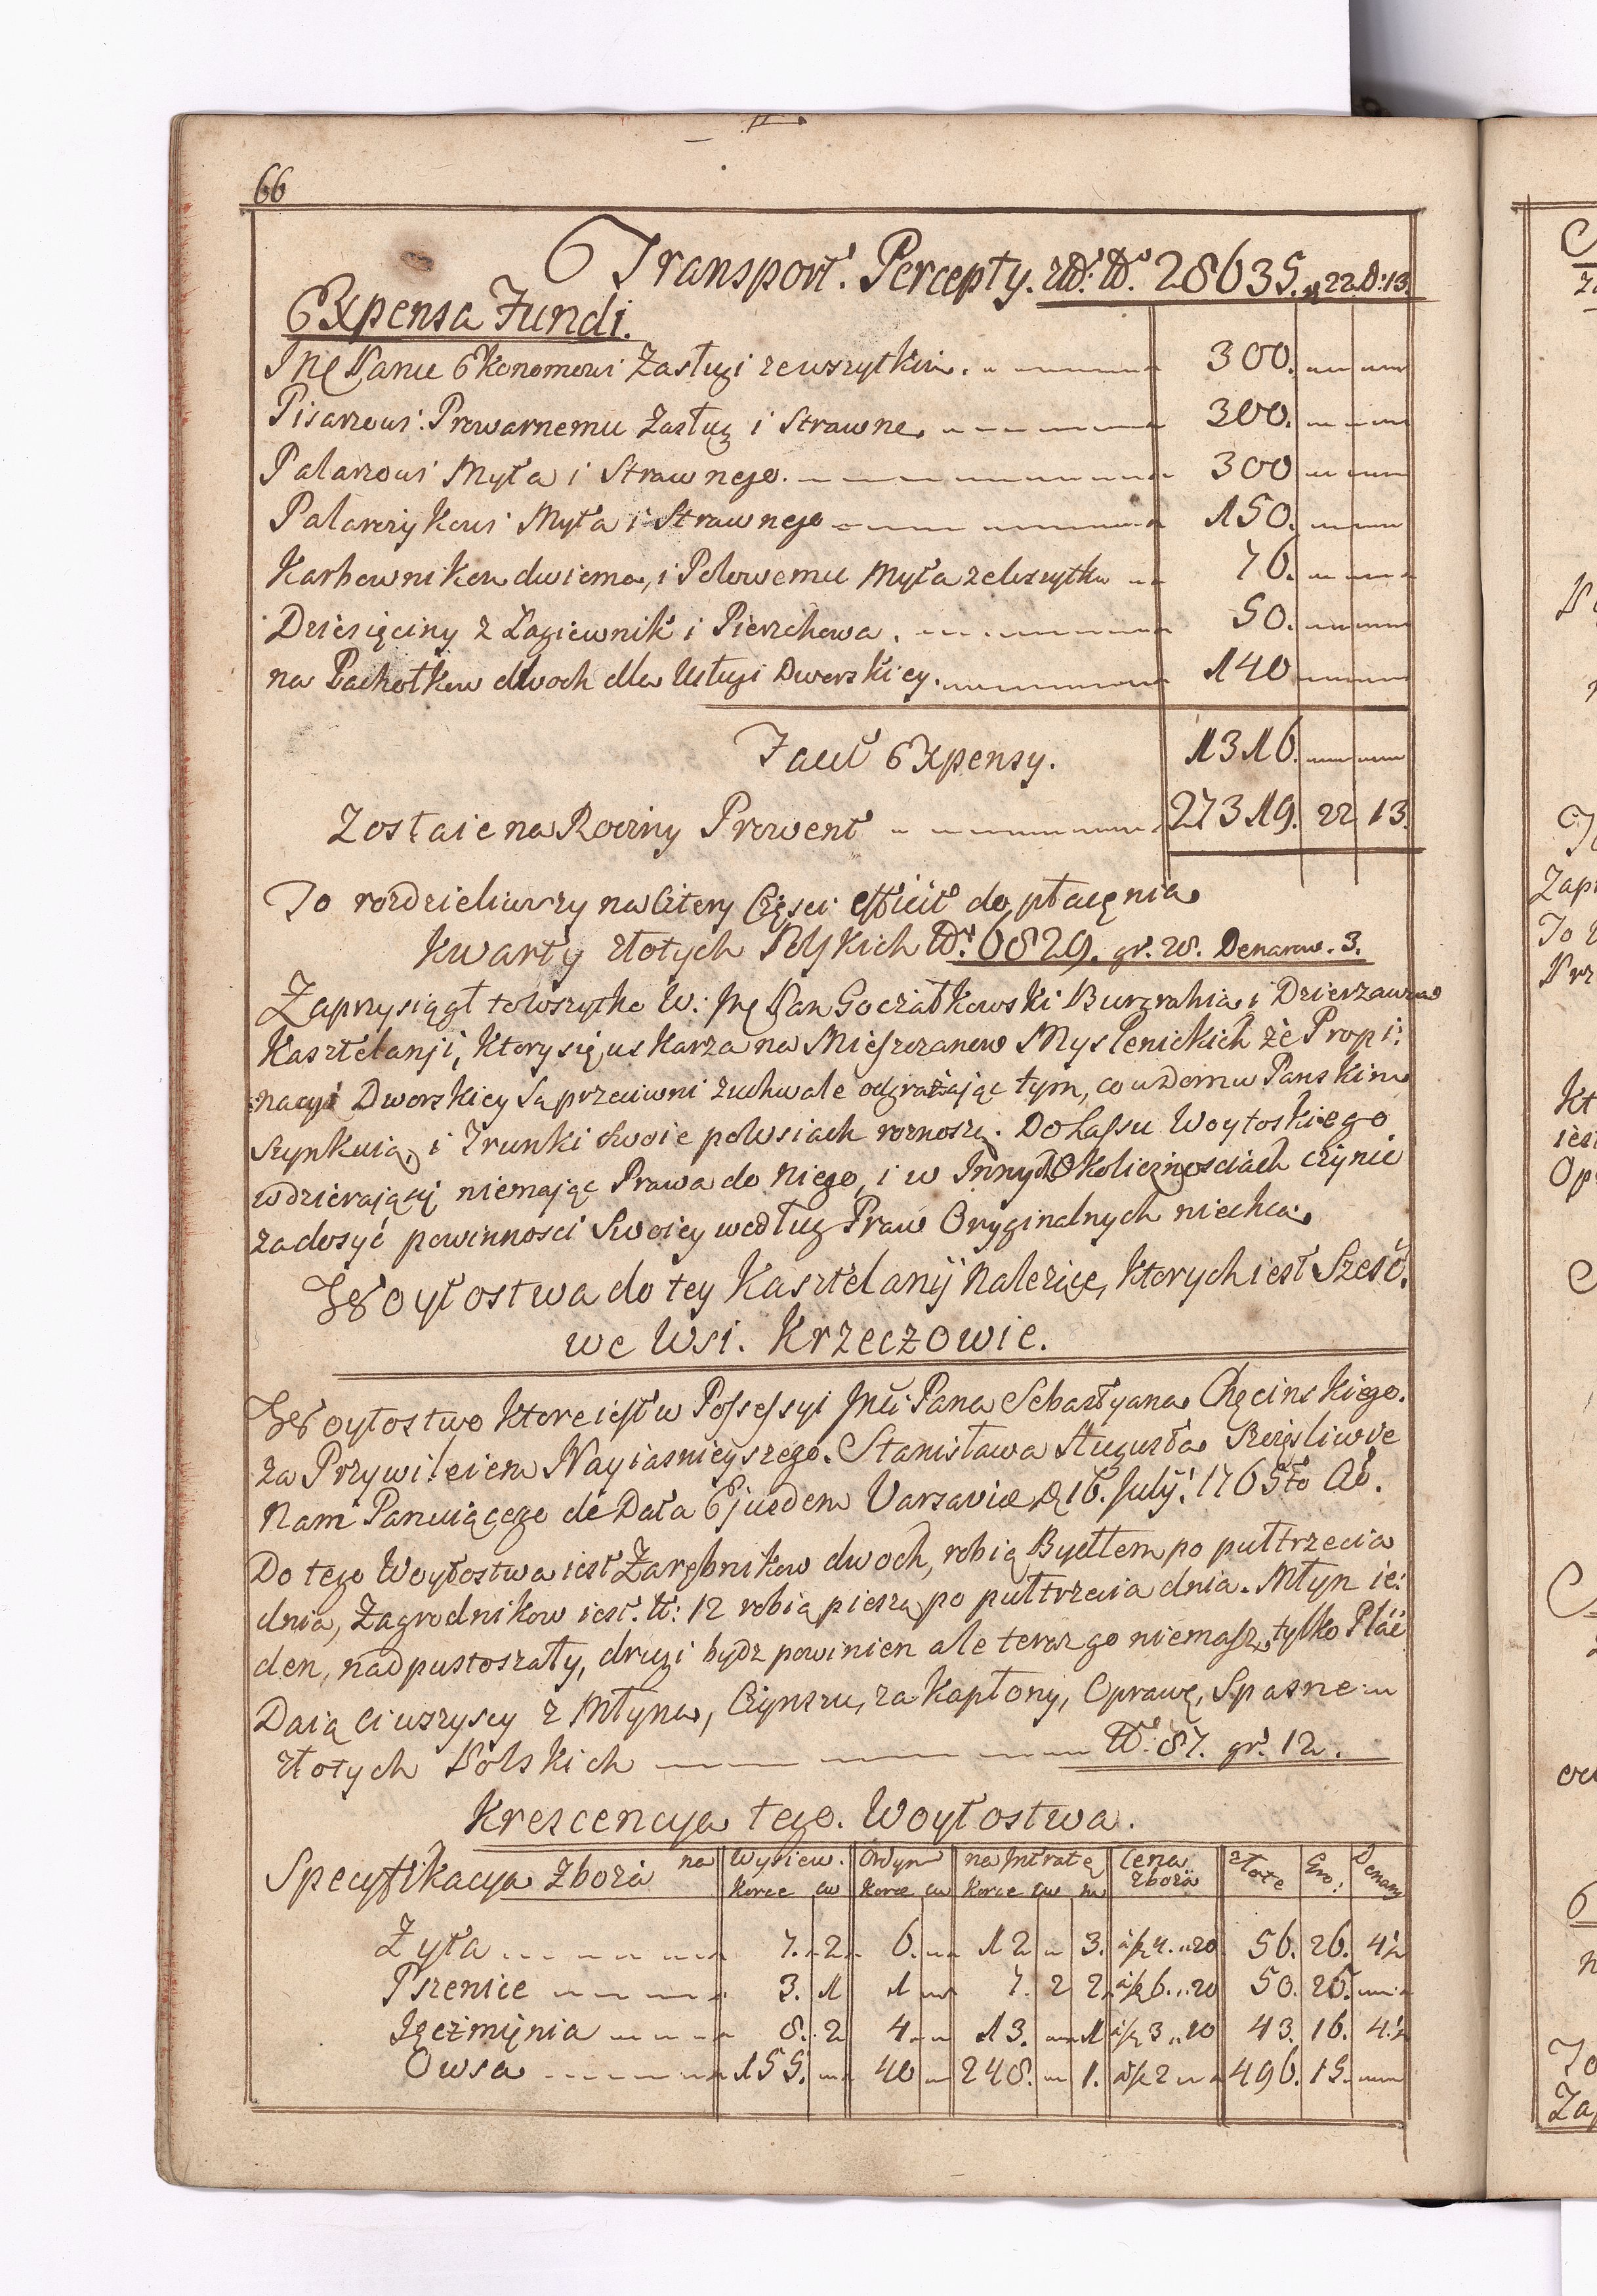 66
Transport. Percepty. 28635. „ 22. d: 13.
Expensa Fundi.
Jmę Panu Ekonomowi Zasługi zewszytkim. 300.
Pisarzowi Prowarnemu Zasług i Strawne. 300.
Palarzowi Myta i Strawnego. 300
Palarczykowi Myta i Strawnego 150.
Karbownikow dwiema, i Polowemu Myta zewszytku 76.
Dziesięciny z Łagiewnik i Pierzchowa. 50.
na Pachołkow dwoch dla Usługi Dworskiey. 140
Facit Expensy. 1316.
Zostaie na Roczny Prowent 27319. 22 13.
To rozdzieliwszy na Cztery Częsci efficit do płacęnia
Kwarty złotych Polskich 6829. gr. 28. Denarow. 3.
Zaprzysiągł to wszytko W: Jmę Pan Goczałkowski Burgrabia i Dzierzawca
Kasztelanji, ktory się uskarza na Mieszczanow Myslenickich że Propi:
nacyi Dworskiey są przeciwni zuchwale odgrażając tym, co w Domu Panskim
Szynkuią, i Trunki swoie po Wsiach roznoszą. Do Lassu Woytoskiego
wdzierający niemając Prawa do Niego, i w Innych Okolicznosciach czynic
zadosyć powinnosci Swoiey według Praw Oryginalnych niechcą.
Woytostwa do tey Kasztelanij Nalezące, ktorych iest Szesć.
we Wsi. Krzeczowie.
Woytostwo ktore iest w Possessyi Jmci Pana Sebastyana Chęcinskiego.
za Przywileiem Nayiasnieyszego. Stanisława Augusta Szczęsliwie
Nam Panuiącego de Data Ejusdem Varsaviæ d. 16. Julÿ. 1765to Ao.
Do tego Woytostwa iest Zarębnikow dwoch, robią Bydłem po pułtrzecia
dnia, Zagrodnikow iest. 12 robią pieszą po pułtrzecia dnia. Młyn ie:
den, nadpustoszały, drugi bydz powinien ale teraz go niemasz, tylko Plac
Daią ci wszyscy z Młyna, Czynszu, za Kapłony, Oprawę, Spasne
złotych Polskich 87. gr. 12.
Krescencya tego. Woytostwa.
Specyfikacya zboża na Wysiew. Ordyn na Intratę Cena zboża złote Gro: Denary
Korce ćw Korce ćw Korce ćw
Zyta 7. 2 6. 12 3. 4. „ 20 56. 26. 4½
Pszenice 3. 1 1 7. 2 2 6. „ 20 50. 25.
Jęczmięnia 8. 2 4 13. 1 3 „ 10 43. 16. 4½
Owsa 155. 40 248. 1. 2 496. 15.